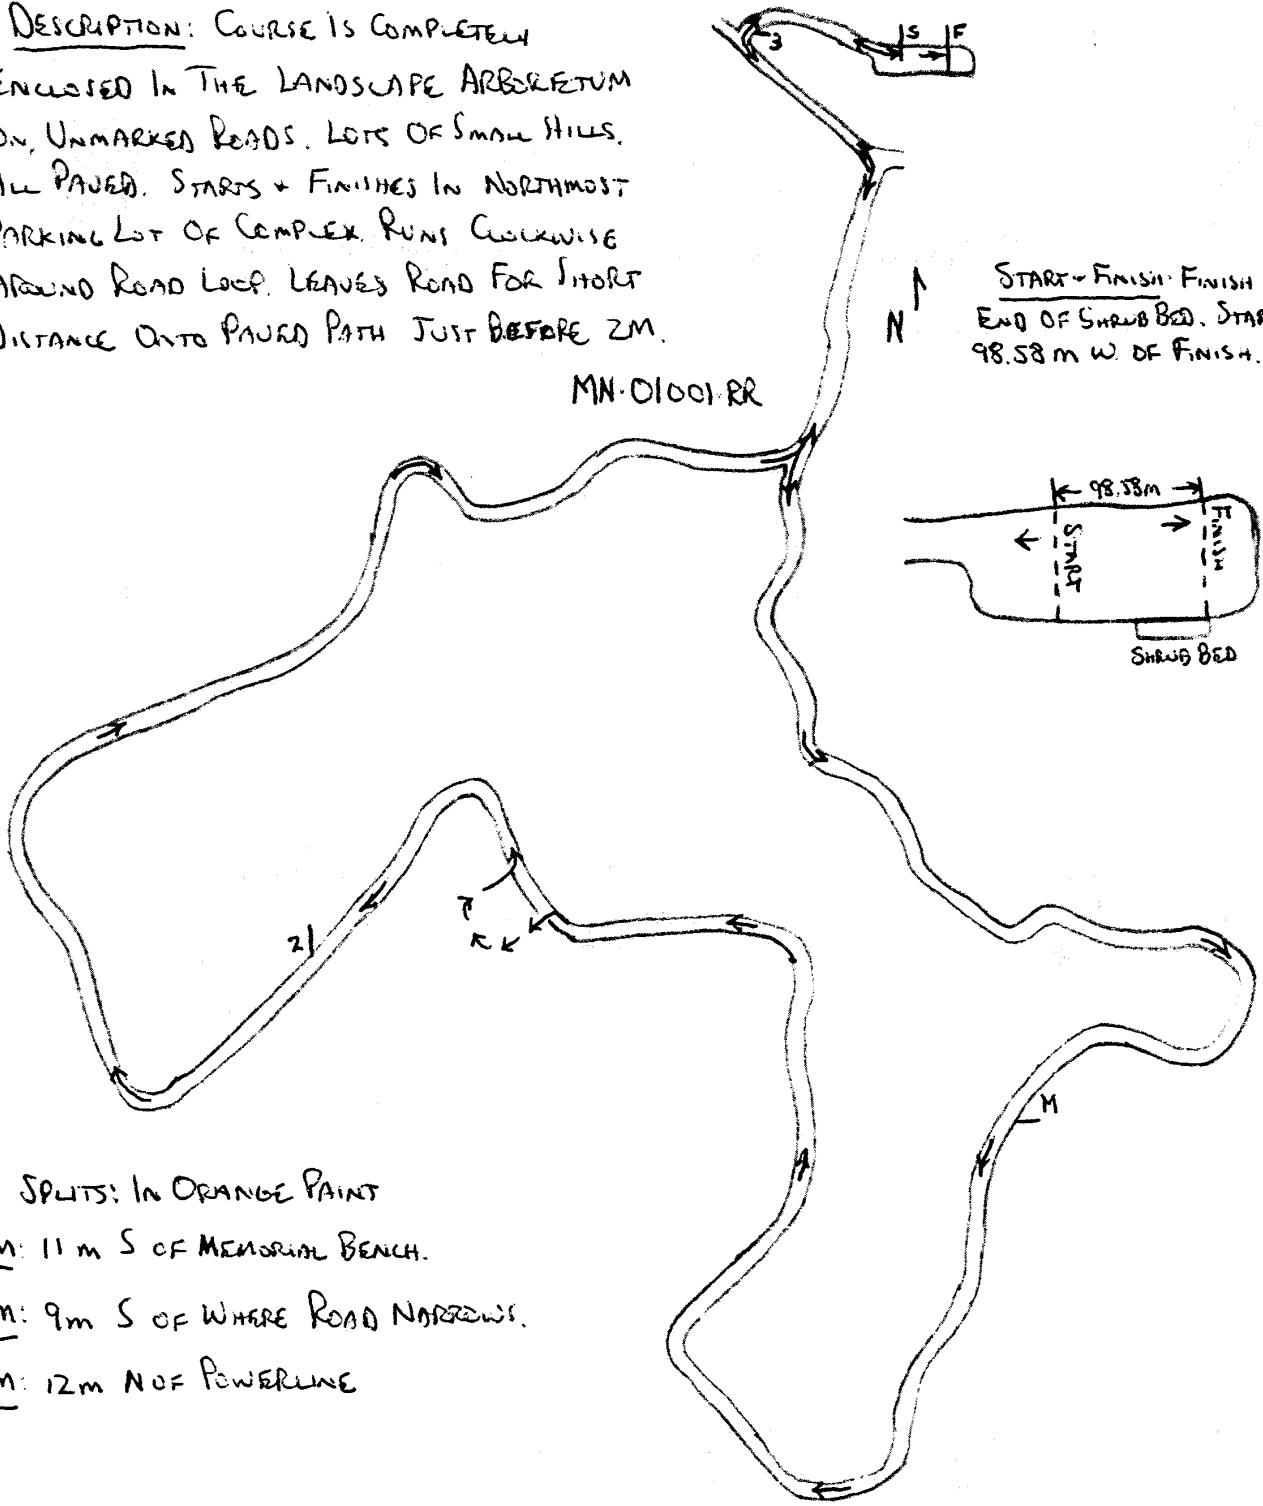 DESCRIPTION: COURSE IS COMPLETELY
ENCLOSED IN THE LANDSCAPE ARBORETUM
ON UNMARKED ROADS. LOTS OF SMALL HILLS.
ALL PAVED. STARTS + FINISHES IN NORTHMOST
PARKING LOT OF COMPLEX. RUNS CLOCKWISE
AROUND ROAD LOOP. LEAVES ROAD FOR SHORT
DISTANCE ONTO PAVED PATH JUST BEFORE 2M.
MN.01001.RR
3
S F
N
START - FINISH: FINISH
END OF SHRUB BED. STAR
98.58 m W. OF FINISH.
98.58m
START
FINISH
SHRUB BED
2
M
SPLITS: IN ORANGE PAINT
M: 11 m S OF MEMORIAL BENCH.
M: 9m S OF WHERE ROAD NARROWS.
M: 12m N OF POWERLINE